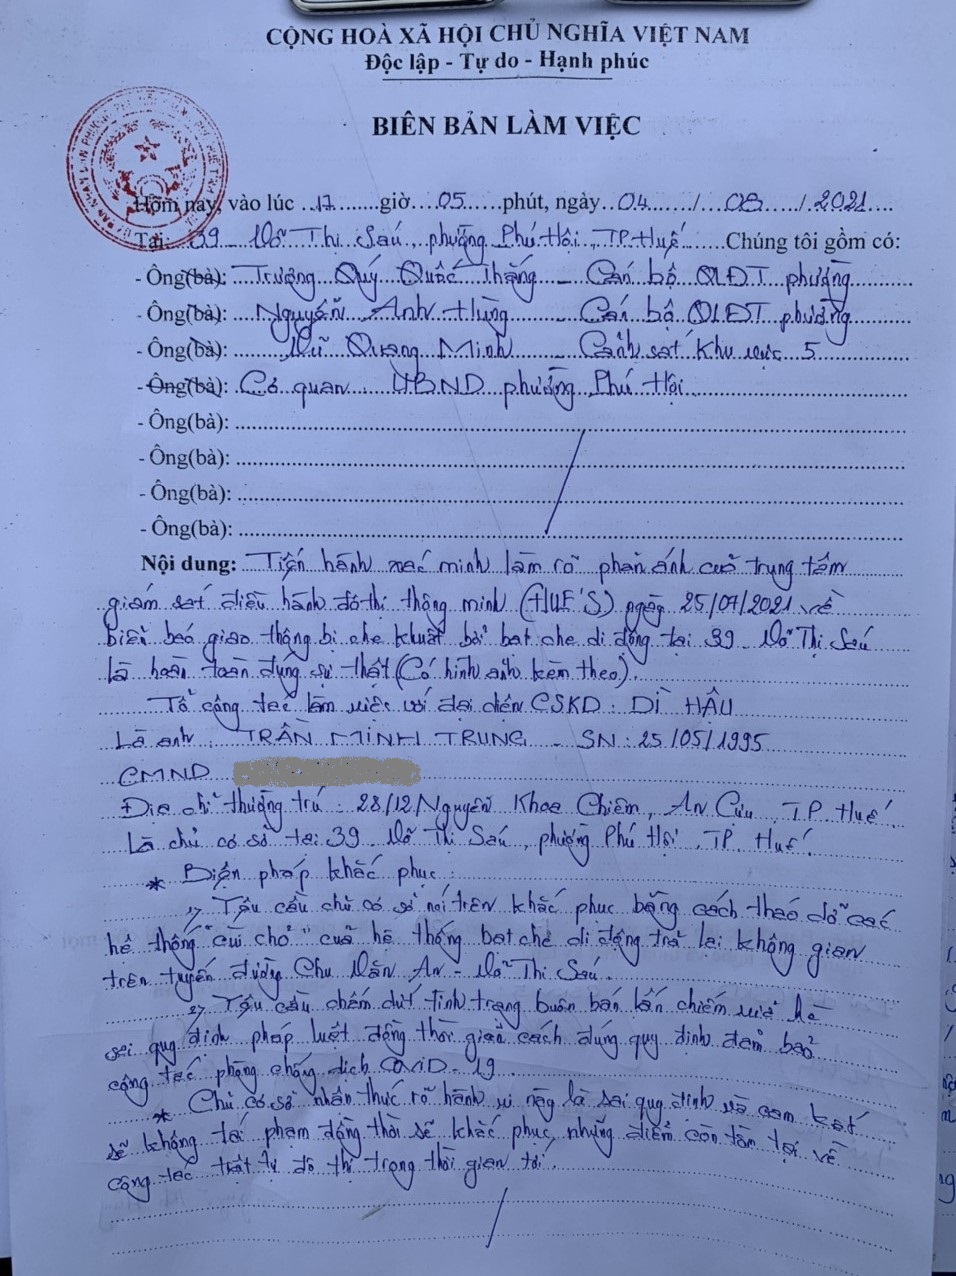 CỘNG HOÀ XÃ HỘI CHỦ NGHĨA VIỆT NAM
Độc lập - Tự do - Hạnh phúc
BIÊN BẢN LÀM VIỆC
Hôm nay, vào lúc 17 giờ 05 phút, ngày 04 / 08 / 2021
Tại: 39 Võ Thị Sáu, phường Phú Hội, TP Huế Chúng tôi gồm có:
- Ông(bà): Trương Quý Quốc Thắng - Cán bộ QLĐT phường
- Ông(bà): Nguyễn Anh Hùng - Cán bộ QLĐT phường
- Ông(bà): Vũ Quang Minh - Cảnh sát khu vực 5
- Ông(bà): Cơ quan UBND phường Phú Hội
- Ông(bà):
- Ông(bà):
- Ông(bà):
- Ông(bà):
Nội dung: Tiến hành xác minh làm rõ phản ánh của trung tâm
giám sát điều hành đô thị thông minh (HUE'S) ngày 25/07/2021 về
biển báo giao thông bị che khuất bởi bạt che di động tại 39 Võ Thị Sáu
là hoàn toàn đúng sự thật (Có hình ảnh kèm theo).
Tổ công tác làm việc với đại diện CSKD: DÌ HẬU
Là anh: TRẦN MINH TRUNG - SN: 25/05/1995
CMND
Địa chỉ thường trú: 28/12 Nguyễn Khoa Chiêm, An Cựu, TP. Huế.
Là chủ cơ sở tại 39 Võ Thị Sáu, phường Phú Hội, TP. Huế.
* Biện pháp khắc phục:
1/ Yêu cầu chủ cơ sở nói trên khắc phục bằng cách tháo dỡ các
hệ thống "cùi chỏ" của hệ thống bạt che di động trả lại không gian
trên tuyến đường Chu Văn An - Võ Thị Sáu.
2/ Yêu cầu chấm dứt tình trạng buôn bán lấn chiếm vỉa hè
sai quy định pháp luật đồng thời giản cách đúng quy định đảm bảo
công tác phòng chống dịch COVID-19.
* Chủ cơ sở nhận thức rõ hành vi này là sai quy định và cam kết
sẽ không tái phạm đồng thời sẽ khắc phục những điểm còn tồn tại về
công tác trật tự đô thị trong thời gian tới.